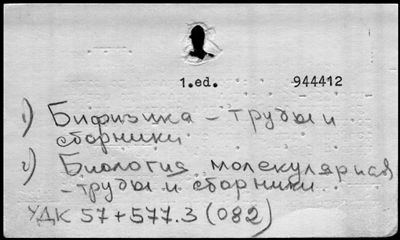 1.ed. 944412
1) Биофизика - труды и
сборники
2) Биология молекулярная
- труды и сборники.
УДК 57+577.3 (082)